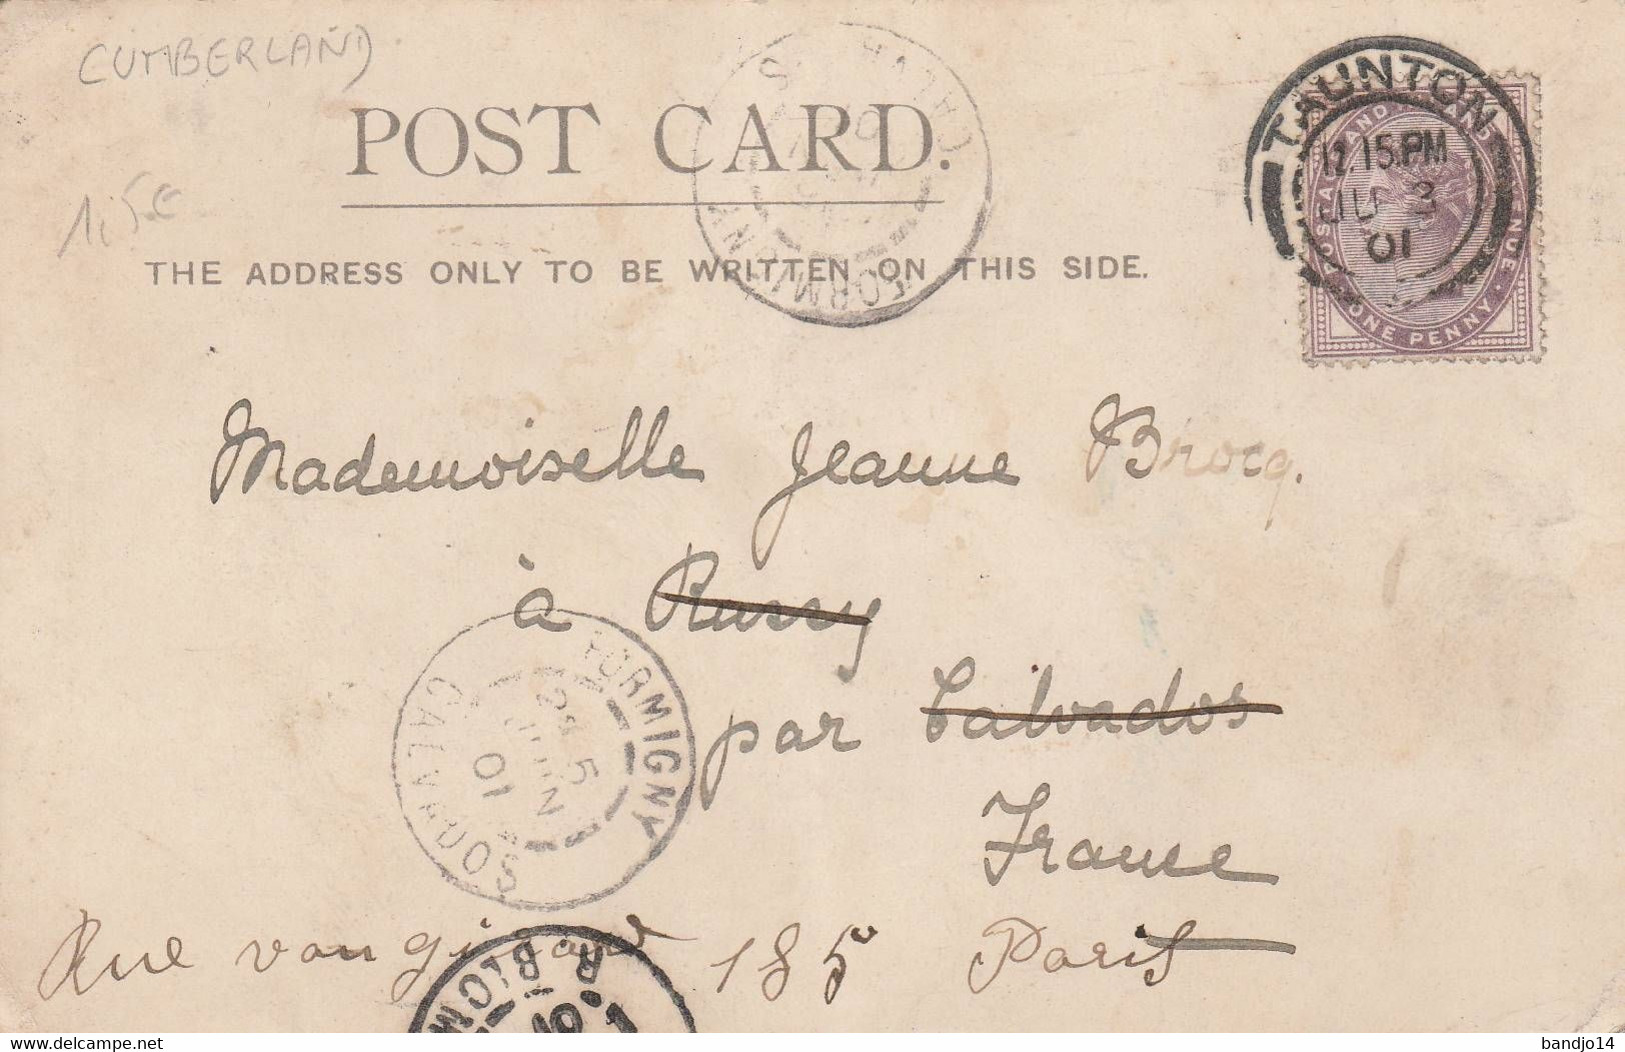 CUMBERLAND
POST CARD.
1,5€
THE ADDRESS ONLY TO BE WRITTEN ON THIS SIDE.
TAUNTON
12.15.PM
JU 3
01
POSTAGE AND INLAND REVENUE
ONE PENNY
FORMIGNY
CALVADOS
Mademoiselle Jeanne Brocq.
à Russy
par Calvados
France
FORMIGNY
2E 5
JUIN
01
CALVADOS
Rue vaugirard 185 Paris
R. BLOM
01
delcampe.net
bandjo14